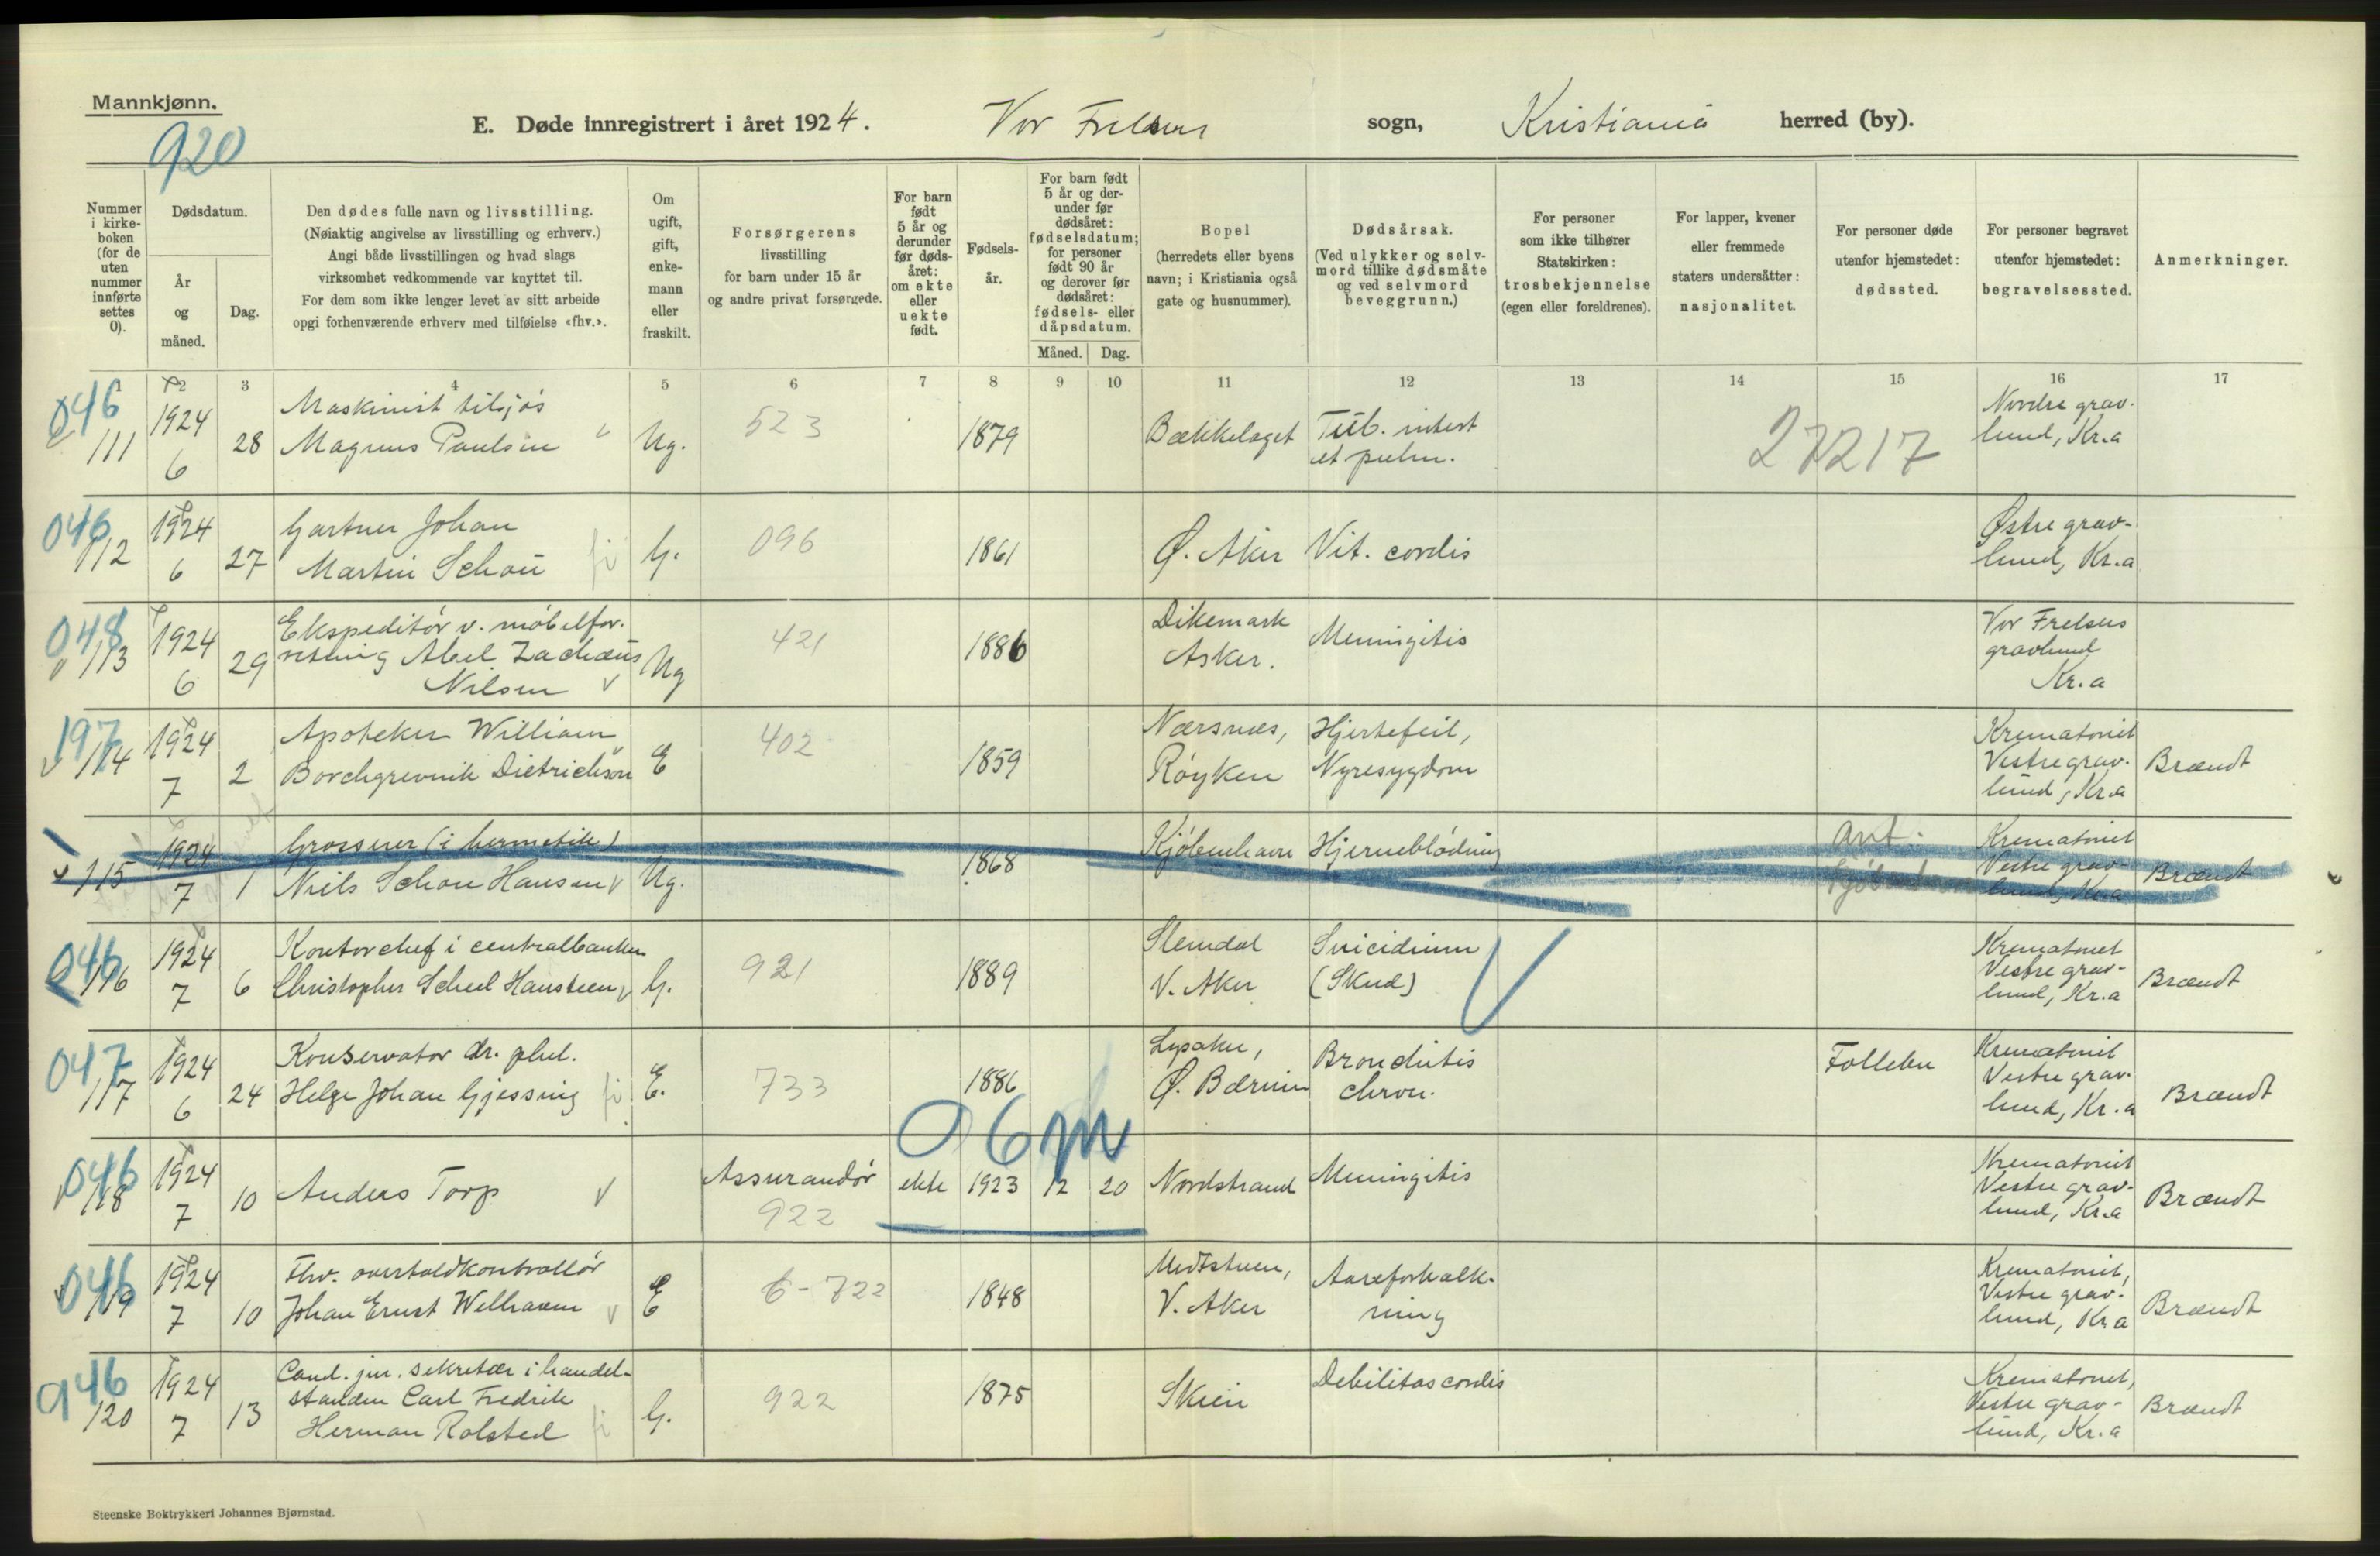 Mannkjønn.
920
E. Døde innregistrert i året 1924. Vor Frelsers sogn, Kristiania herred (by).
Nummer i kirkeboken (for de uten nummer innførte settes 0).
Dødsdatum.
År og måned.
Dag.
Den dødes fulle navn og livsstilling.
(Nøiaktig angivelse av livsstilling og erhverv.)
Angi både livsstillingen og hvad slags
virksomhet vedkommende var knyttet til.
For dem som ikke lenger levet av sitt arbeide
opgi forhenværende erhverv med tilføielse «fhv.».
Om ugift, gift, enkemann eller fraskilt.
Forsørgerens
livsstilling
for barn under 15 år
og andre privat forsørgede.
For barn født 5 år og derunder før dødsåret: om ekte eller uekte født.
Fødselsår.
For barn født 5 år og derunder før dødsåret: fødselsdatum; for personer født 90 år og derover før dødsåret: fødsels- eller dåpsdatum.
Måned. Dag.
Bopel
(herredets eller byens
navn; i Kristiania også
gate og husnummer).
Dødsårsak.
(Ved ulykker og selvmord tillike dødsmåte og ved selvmord beveggrunn.)
For personer
som ikke tilhører
Statskirken:
trosbekjennelse
(egen eller foreldrenes).
For lapper, kvener
eller fremmede
staters undersåtter:
nasjonalitet.
For personer døde
utenfor hjemstedet:
dødssted.
For personer begravet
utenfor hjemstedet:
begravelsessted.
Anmerkninger.
1 2 3 4 5 6 7 8 9 10 11 12 13 14 15 16 17
046 111 1924 6 28 Maskinist tilsjøs Magnus Paulsen Ug. 523 1879 Bækkelaget Tub. intest et pulm. 27217 Nordre gravlund, Kr.a
046 112 1924 6 27 Gartner Johan Martin Schou G. 096 1861 Ø. Aker Vit. cordis Østre gravlund, Kr.a
048 113 1924 6 29 Ekspeditør v. møbelforretning Abel Zachæus Nilsen Ug 421 1886 Dikemark Asker. Meningitis Vor Frelsers gravlund Kr.a
197 114 1924 7 2 Apoteker William Borchgrevink Dietrichson E 402 1859 Nærsnes, Røyken Hjertefeil, Nyresygdom Krematoriet Vestre gravlund, Kr.a Brændt
115 1924 7 1 Grosserer (i hermetik) Niels Schou Hansen Ug. 1868 Kjøbenhavn Hjerneblødning ant. Krematoriet Vestre gravlund, Kr.a Brændt
046 116 1924 7 6 Kontorchef i centralbanken Christopher Scheel Hansteen G. 921 1889 Slemdal V. Aker Suicidium (Skud) Krematoriet Vestre gravlund, Kr.a Brændt
047 117 1924 6 24 Konservator dr. phil. Helge Johan Gjessing E. 733 1886 Lysaker, Ø. Bærum Bronchitis chron. Follebu Krematoriet Vestre gravlund, Kr.a Brændt
06m
046 118 1924 7 10 Anders Torp Assurandør 922 ekte 1923 12 20 Nordstrand Meningitis Krematoriet Vestre gravlund, Kr.a Brændt
046 119 1924 7 10 Fhv. overtoldkontrollør Johan Ernst Welhaven E 6-722 1848 Midtstuen, V. Aker Aareforkalkning Krematoriet, Vestre gravlund, Kr.a Brændt
946 120 1924 7 13 Cand. jur. sekretær i handelstanden Carl Fredrik Herman Rolsted G. 922 1875 Skien Debilitas cordis Krematoriet, Vestre gravlund, Kr.a Brændt
Steenske Boktrykkeri Johannes Bjørnstad.